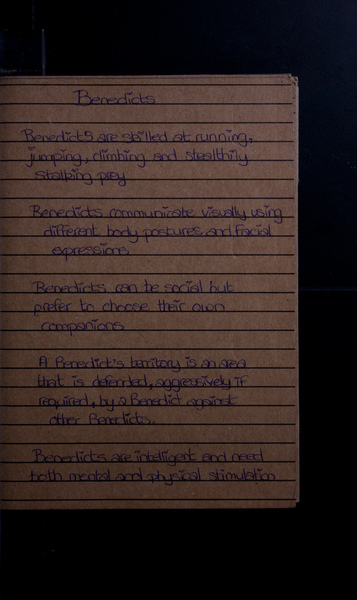 Benedicts
Benedicts are skilled at running,
jumping, climbing and stealthily
stalking prey
Benedicts communicate visually using
different body postures and facial
expressions
Benedicts can be social but
prefer to choose their own
companions
A Benedict's territory is an area
that is defended, aggressively if
required, by a Benedict against
other Benedicts.
Benedicts are intelligent and need
both mental and physical stimulation